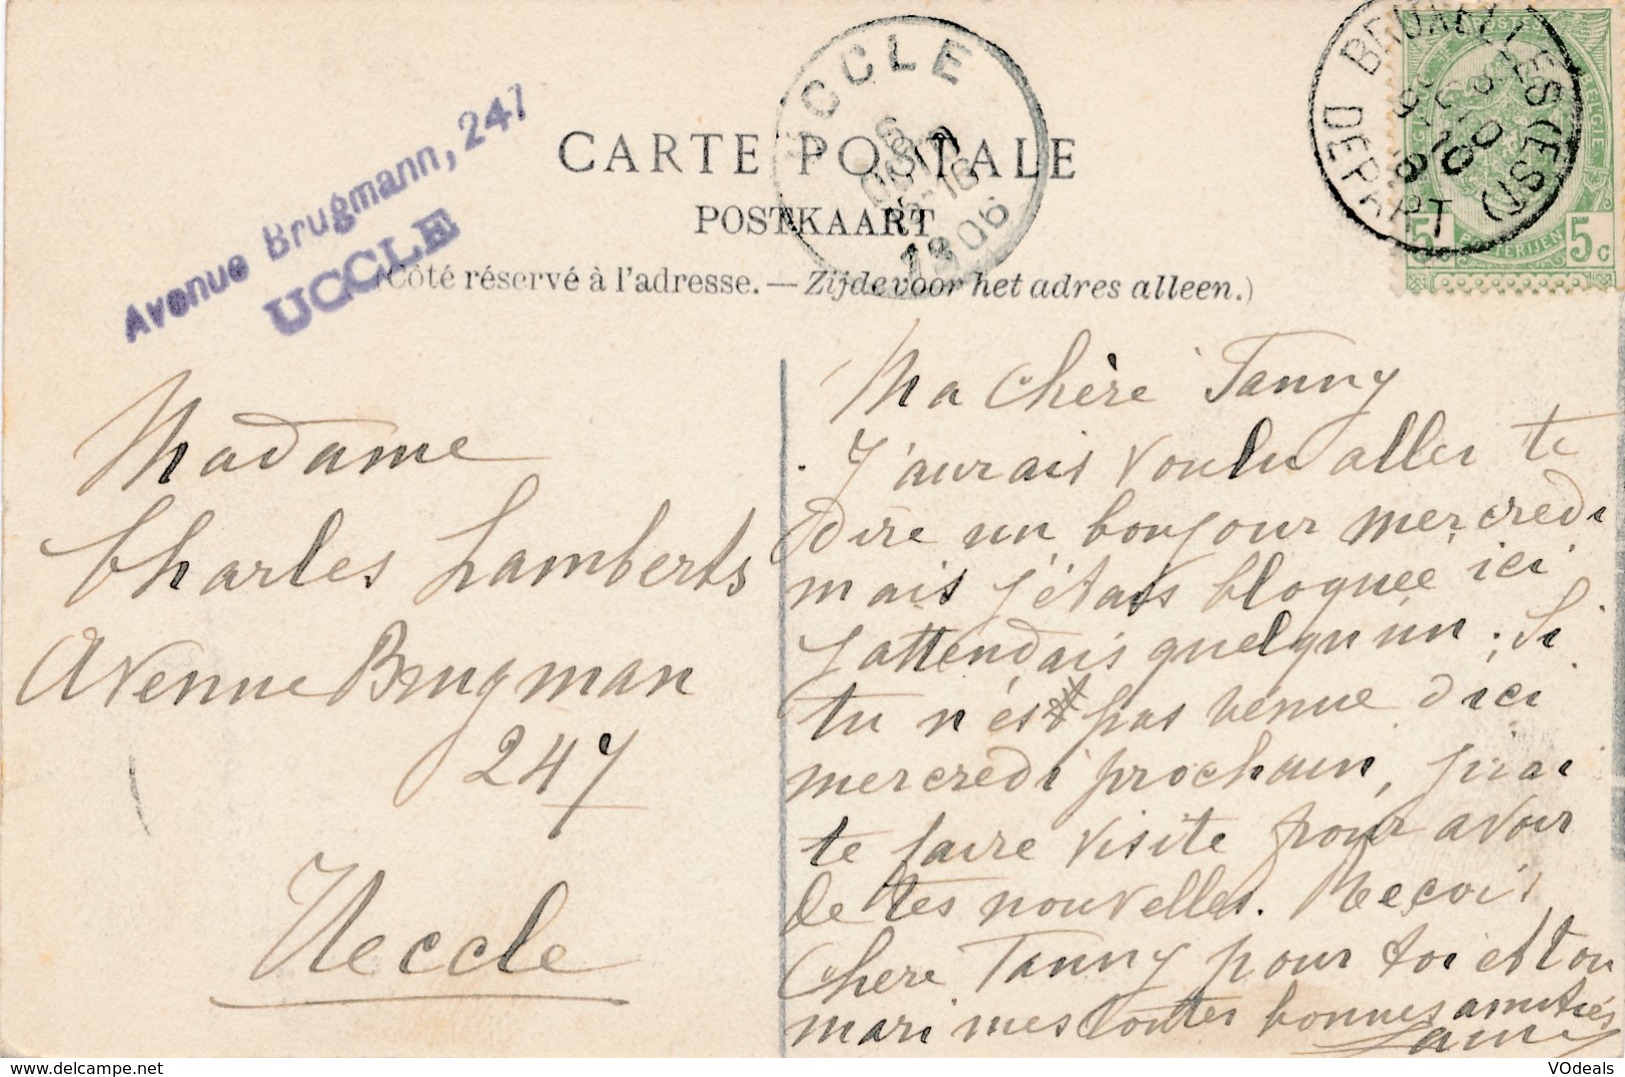 Avenue Brugmann, 247
UCCLE
CARTE POSTALE
POSTKAART
(Côté réservé à l'adresse. — Zijde voor het adres alleen.)
UCCLE
1906
BRUXELLES (EST)
DEPART
POSTES
BELGIQUE
BELGIE
POSTERIJEN
5
5 c
Madame
Charles Lamberts
Avenue Brugman
247
Ueccle
Ma Chère Fanny
J'aurais voulu aller te
dire un bonjour mercredi
mais j'étais bloquée ici
j'attendais quelqu'un. Si
tu n'es pas venue d'ici
mercredi prochain, j'irai
te faire visite pour avoir
de tes nouvelles. Reçois
Chere Fanny pour toi et ton
mari mes toutes bonnes amitiés
VOdeals
delcampe.net